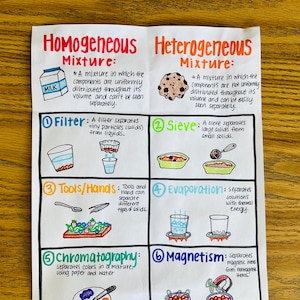 Homogeneous
Mixture:
* A mixture in which the
components are uniformly
distributed throughout its
volume and can't be seen
separately.
MILK
Heterogeneous
Mixture:
* A mixture in which the
components are not uniformly
distributed throughout its
volume and can be easily
seen separately.
① Filter: A filter separates
tiny particles (solids)
from liquids.
② Sieve: A sieve separates
large solids from
small solids.
③ Tools/Hands: Tools and
hand can
separate
different
types of solids.
④ Evaporation: Separates
solutions
with thermal
energy.
⑤ Chromatography:
Separates colors in a mixture
using paper and water
⑥ Magnetism:
Separates
magnetic
from